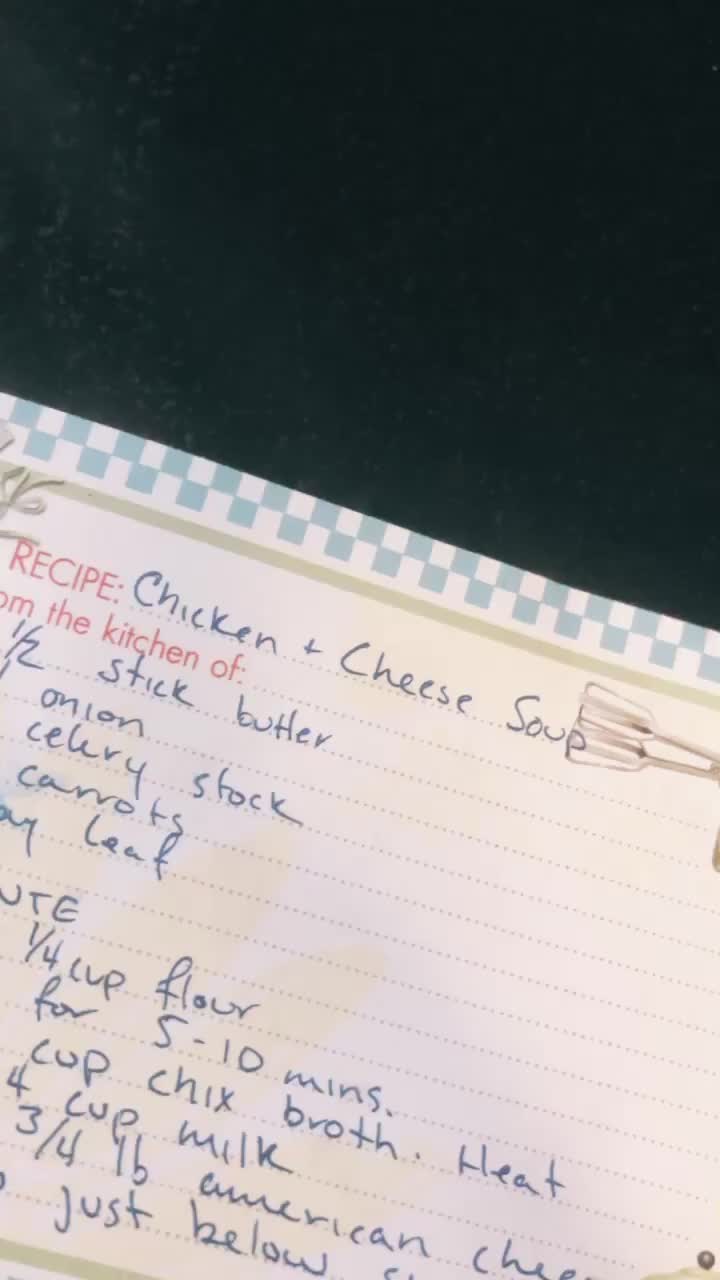 RECIPE: Chicken + Cheese Soup
the kitchen of:
1/2 stick butter
onion
celery stock
carrots
leaf
1/4 cup flour
for 5-10 mins.
cup chix broth. Heat
cup milk
3/4 lb american
just below